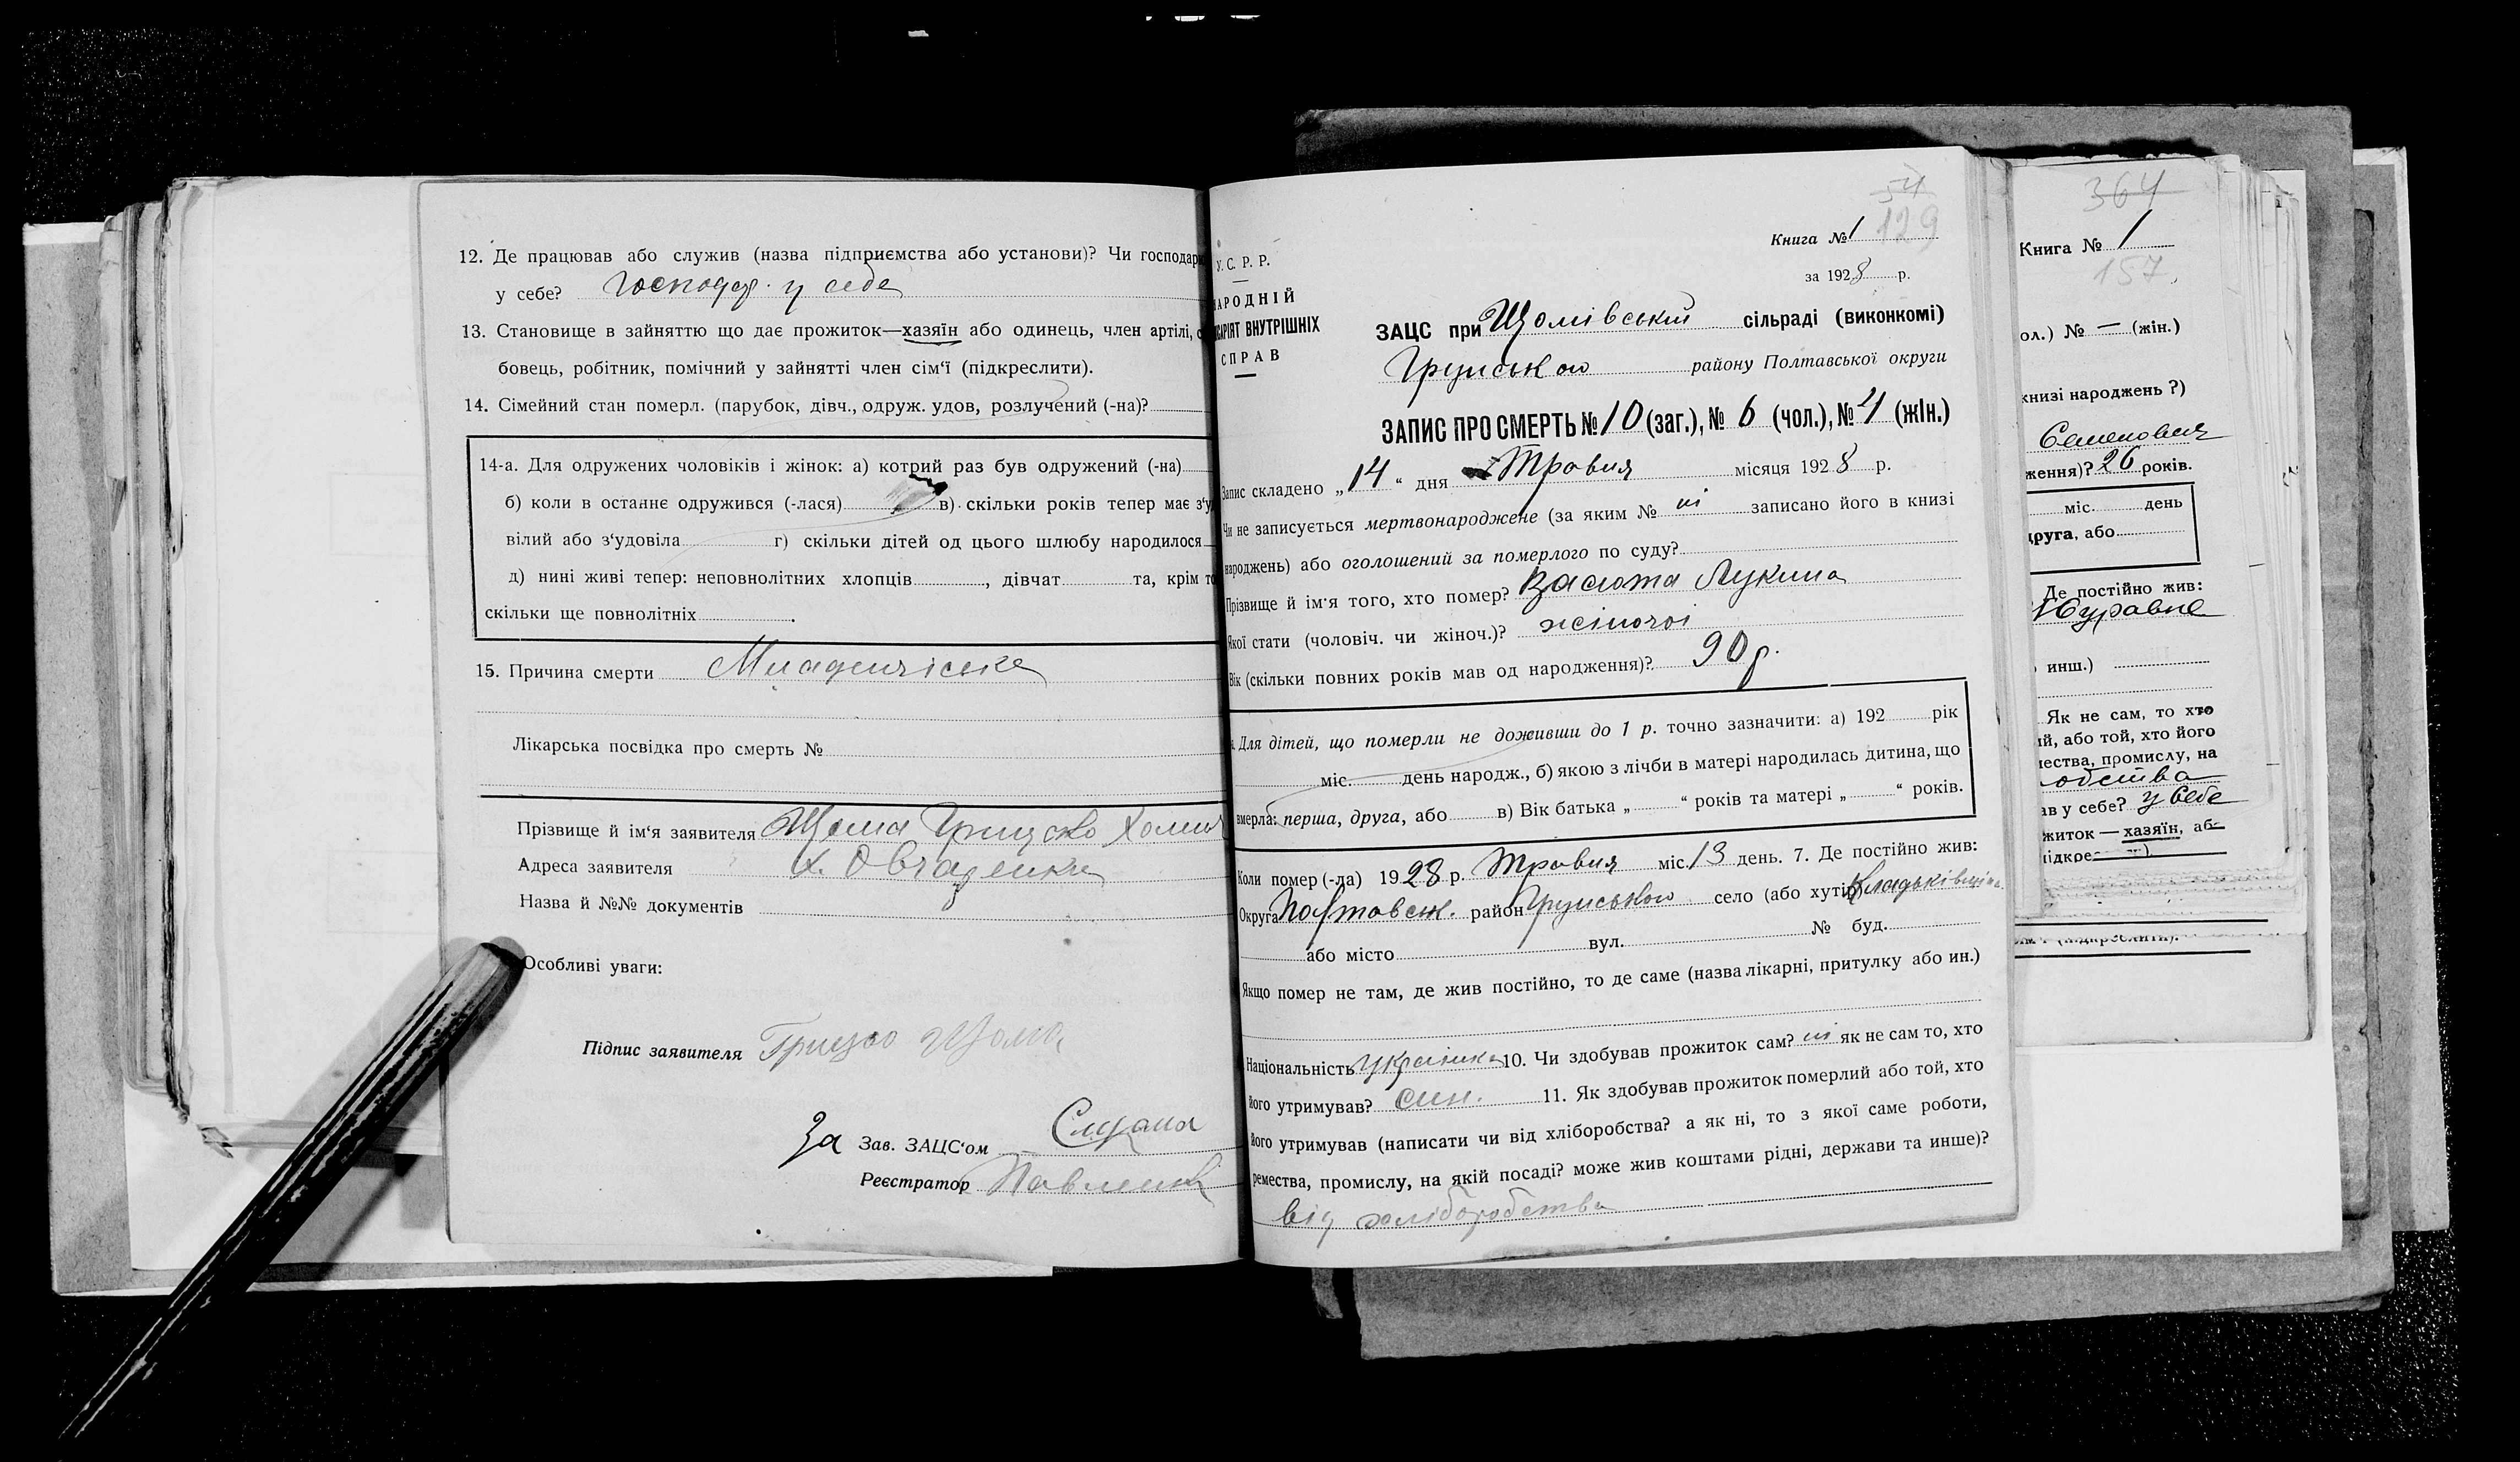 12. Де працював або служив (назва підприємства або установи)? Чи господарю
у себе? Господар. у себе
13. Становище в зайняттю що дає прожиток—хазяїн або одинець, член артілі,
бовець, робітник, помічний у зайнятті член сім‘ї (підкреслити).
14. Сімейний стан померл. (парубок, дівч., одруж. удов, розлучений (-на)?
14-а. Для одружених чоловіків і жінок: а) котрий раз був одружений (-на)
б) коли в останнє одружився (-лася) в) скільки років тепер має з‘у
вілий або з‘удовіла г) скільки дітей од цього шлюбу народилося
д) нині живі тепер: неповнолітних хлопців , дівчат та, крім то
скільки ще повнолітніх .
15. Причина смерти Младенчіське
Лікарська посвідка про смерть №
Прізвище й ім‘я заявителя Щома Грицско Хомич
Адреса заявителя х. Овчаренки
Назва й №№ документів
Особливі уваги:
Підпис заявителя Грицко Щома
За Зав. ЗАЦС‘ом
Реєстратор Павленко
54
129
Книга № 1
за 1928 р.
У. С. Р. Р.
НАРОДНІЙ
САРІЯТ ВНУТРІШНІХ
СПРАВ
ЗАЦС при Щомівський сільраді (виконкомі)
Грунського району Полтавської округи
ЗАПИС ПРО СМЕРТЬ № 10 (заг.), № 6 (чол.), № 4 (жін.)
Запис складено „14“ дня Травня місяця 1928 р.
Чи не записується мертвонароджене (за яким № ні записано його в книзі
народжень) або оголошений за померлого по суду?
Прізвище й ім‘я того, хто помер? Васюта Лукина
Якої стати (чоловіч. чи жіноч.)? жіночої
Вік (скільки повних років мав од народження)? 90 р.
Для дітей, що померли не доживши до 1 р. точно зазначити: а) 192 рік
міс. день народж., б) якою з лічби в матері народилась дитина, що
вмерла: перша, друга, або в) Вік батька „ “ років та матері „ “ років.
Коли помер (-ла) 1928 р. Травня міс. 13 день. 7. Де постійно жив:
Округа Полтавськ. район Грунського село (або хутір) Кладьківщина
або місто вул. № буд.
Якщо помер не там, де жив постійно, то де саме (назва лікарні, притулку або ин.)
Національність українка 10. Чи здобував прожиток сам? ні як не сам то, хто
його утримував? син. 11. Як здобував прожиток померлий або той, хто
його утримував (написати чи від хліборобства? а як ні, то з якої саме роботи,
ремества, промислу, на якій посаді? може жив коштами рідні, держави та инше)?
від хліборобства
364
Книга № 1
157
ол.) № — (жін.)
книзі народжень ?)
Семенович
ження)? 26 років.
міс. день
друга, або
Де постійно жив:
инш.)
Як не сам, то хто
ий, або той, хто його
чества, промислу, на
ав у себе? у себе
житок — хазяїн, аб